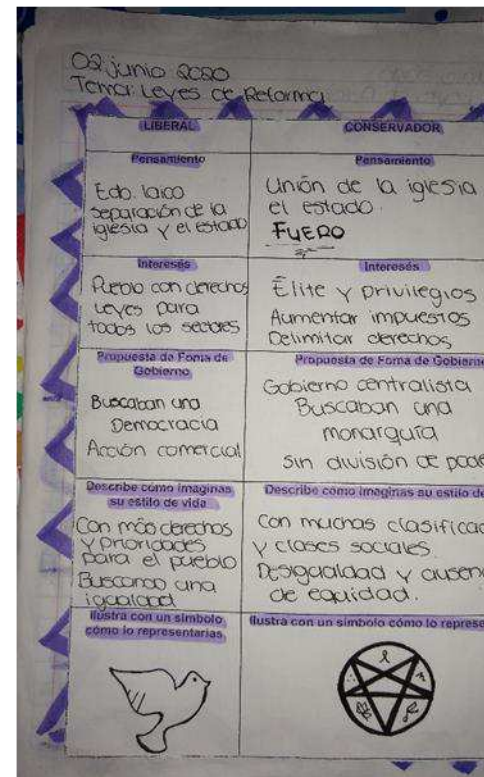 02 junio 2020
Tema: Leyes de Reforma
LIBERAL
CONSERVADOR
Pensamiento
Pensamiento
Edo. laico
separación de la
iglesia y el estado
Unión de la iglesia
el estado.
FUERO
Intereses
Intereses
Pueblo con derechos
Leyes para
todos los sectores
Élite y privilegios
Aumentar impuestos
Delimitar derechos
Propuesta de Foma de
Gobierno
Propuesta de Forma de Gobierno
Buscaban una
Democracia
Acción comercial
Gobierno centralista
Buscaban una
monarquía
sin división de pode
Describe cómo imaginas
su estilo de vida
Describe cómo imaginas su estilo de
Con más derechos
y prioridades
para el pueblo
Buscando una
igualdad
Con muchas clasificac
y clases sociales.
Desigualdad y ausen
de equidad.
Ilustra con un símbolo
cómo lo representarías
Ilustra con un símbolo cómo lo represe